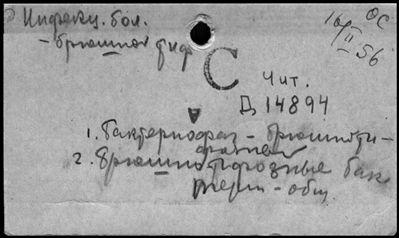 Инфекц. бол.
- брюшной тиф
16/II 56
ОС
С
Чит.
Д 14894
1. Бактериофаг - брюшноти-
фозный
2. Брюшнотифозные бак
терии - общ